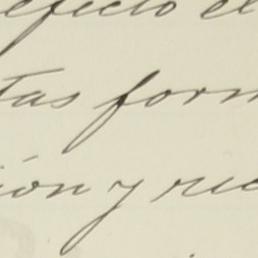 efecto el
tas form
ión y rec